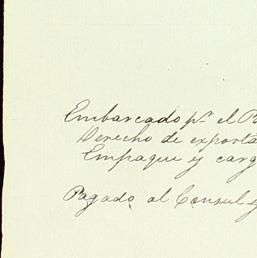 Embarcado pr el
Derecho de exporta
Empaque y carg
Pagado al Consul